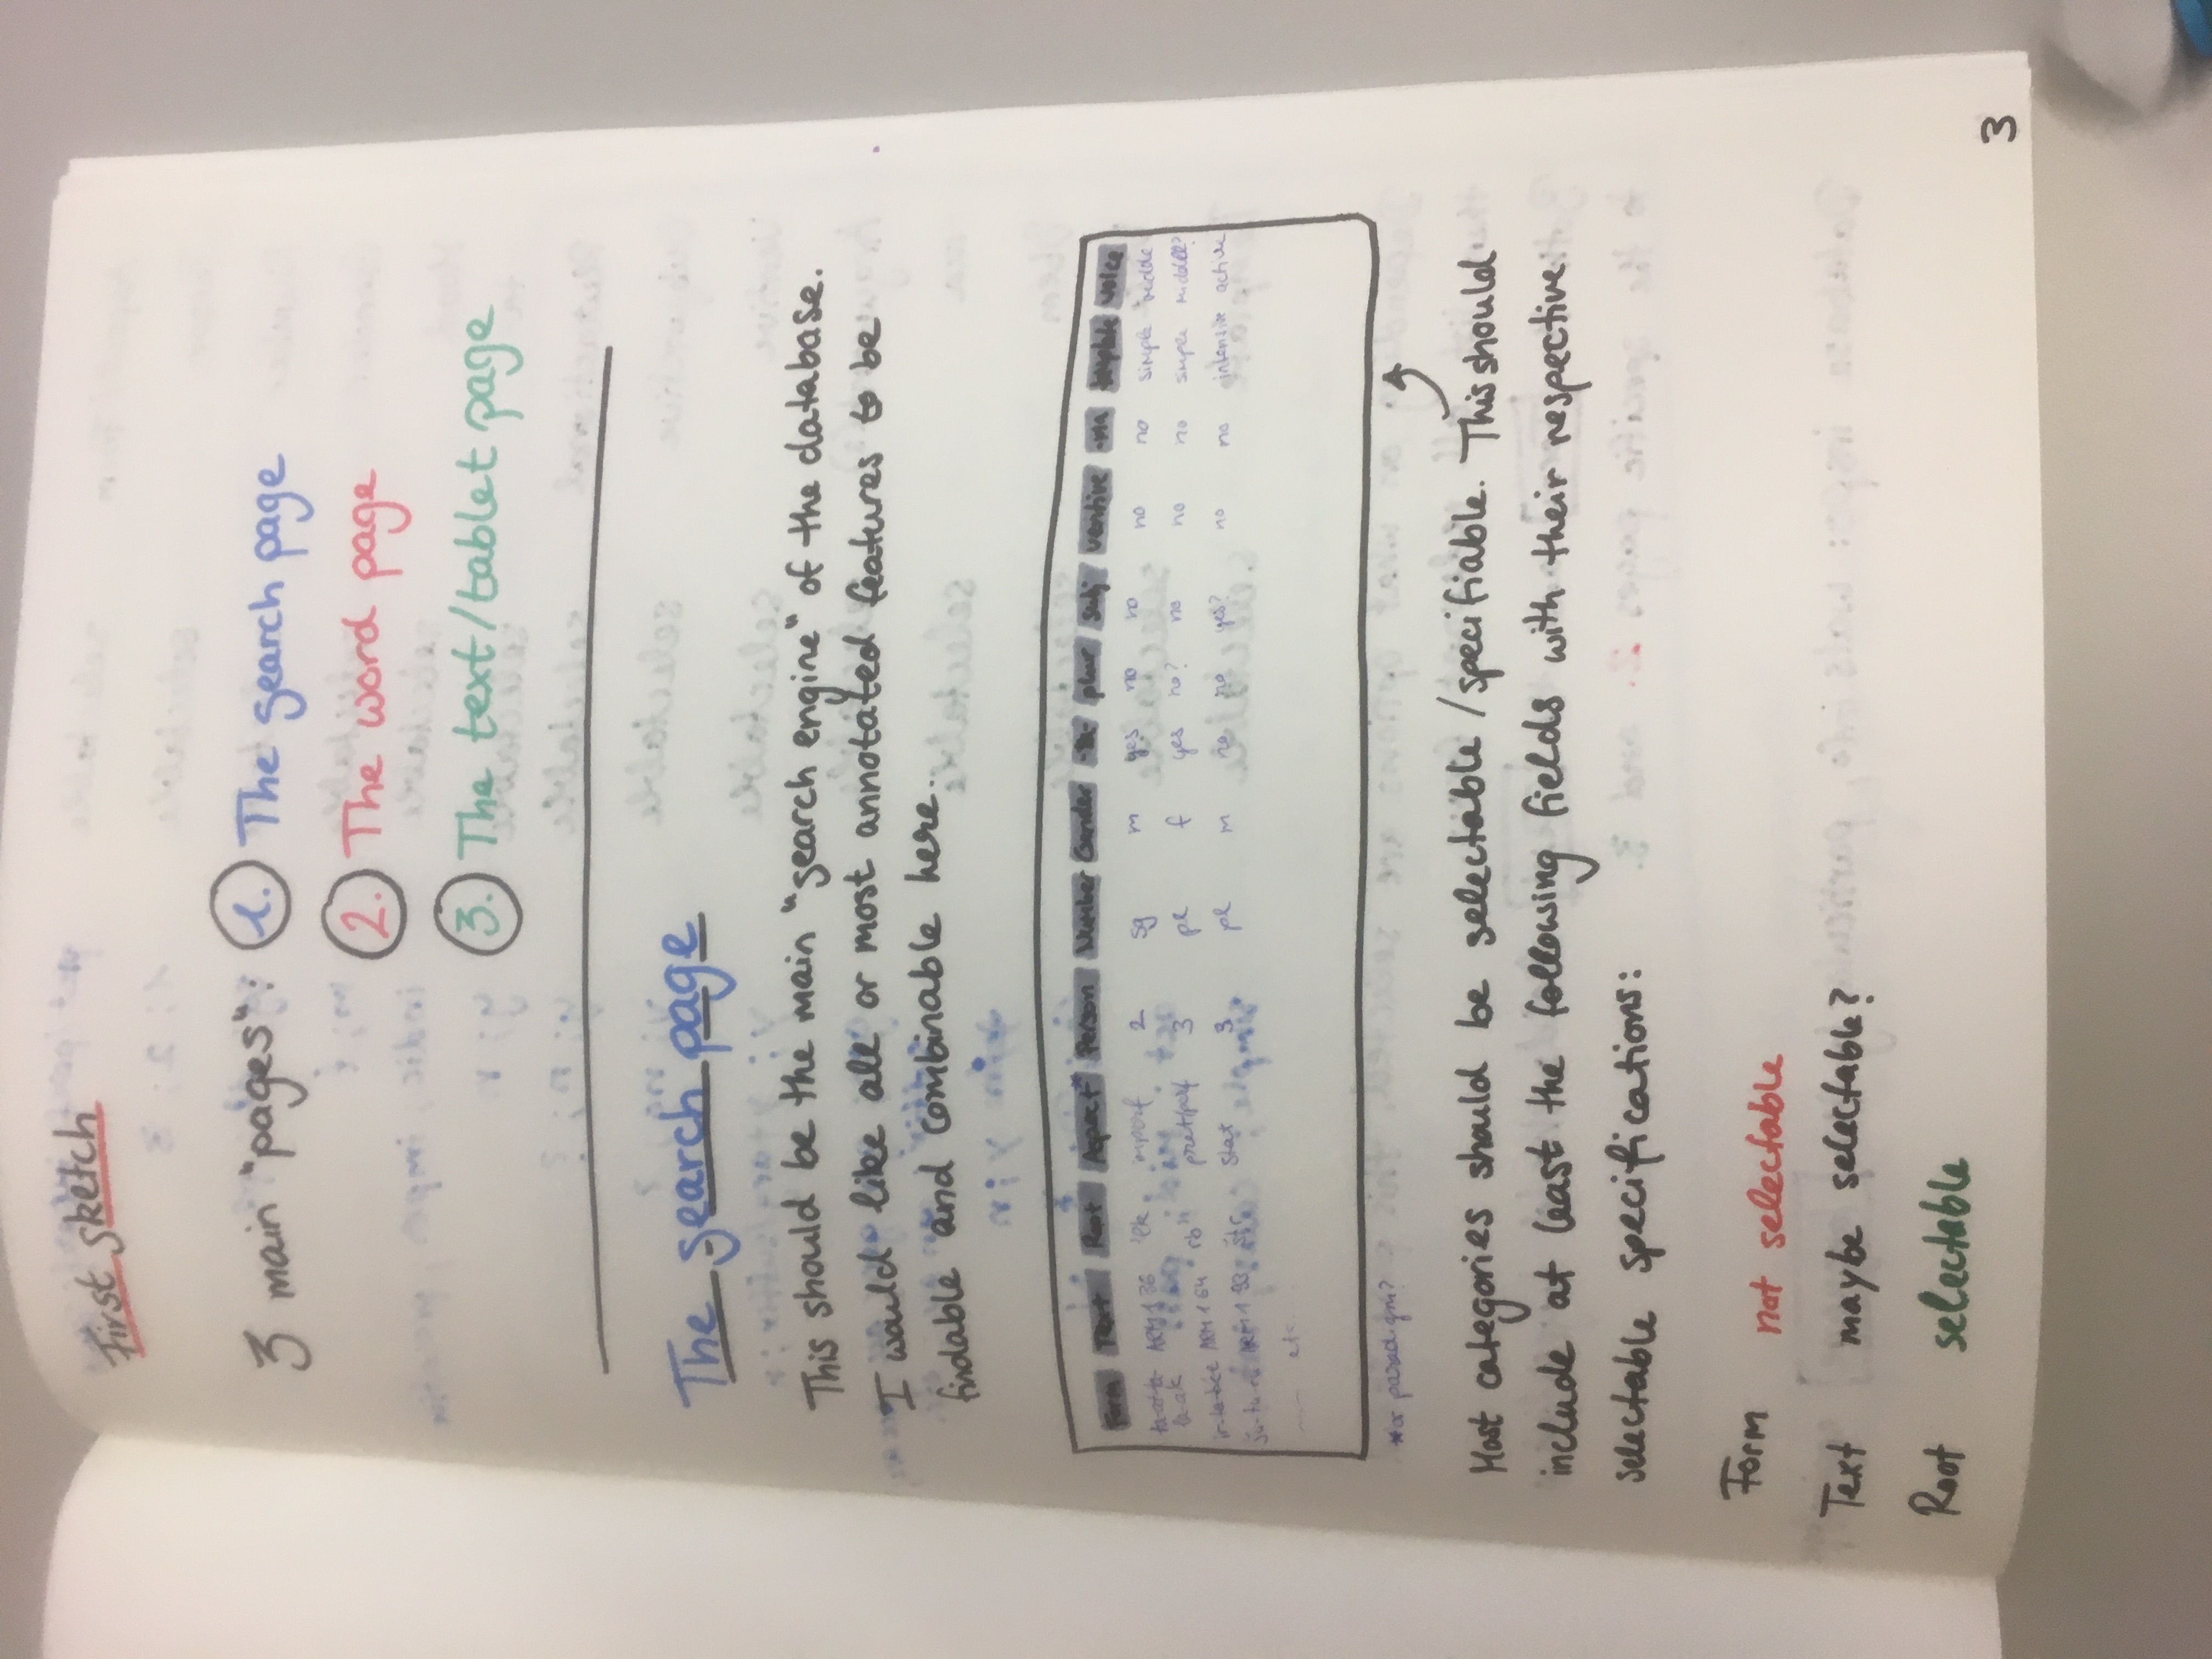 First sketch
3 main "pages": 1. The search page
2. The word page
3. The text/tablet page
The search page
This should be the main "search engine" of the database.
I would like all or most annotated features to be
findable and combinable here.
Form Text Root Aspect* Person Number Gender plur Subj ventive -ma template voice
ARM 1 36 2 sg m yes no no no no simple middle
ARM 1 64 3 pl f yes no? no no no simple middle?
ARM 1 93 stat 3 pl m no no yes? no no intensive active
*or paradigm?
Most categories should be selectable/specifiable. This should
include at least the following fields with their respective
selectable specifications:
Form not selectable
Text maybe selectable?
Root selectable
3